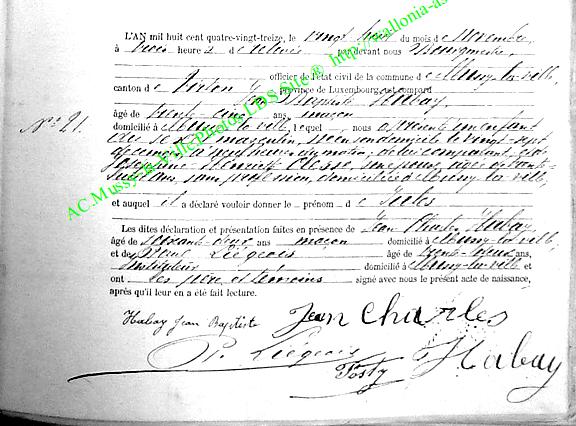 L'AN mil huit cent quatre-vingt-treize, le vingt huit du mois de Novembre
à heures de relevée par devant nous Bourgmestre
officier de l'état civil de la commune de Mussy-la-ville,
canton de Virton province de Luxembourg, est comparu
Jean Baptiste Habay
âgé de trente cinq ans, maçon
domicilié à Mussy la ville, lequel nous a présenté un enfant
du sexe masculin, né en son domicile le vingt-sept
N° 21.
sans profession, domiciliée à Mussy-la-ville,
et auquel il a déclaré vouloir donner le prénom de Jules
Les dites déclaration et présentation faites en présence de Jean Charles Habay,
âgé de soixante-deux ans maçon domicilié à Mussy-la-ville
et de Paul Liégeois âgé de trente-deux ans,
instituteur domicilié à Mussy-la-ville et
ont les père et témoins signé avec nous le présent acte de naissance,
après qu'il leur en a été fait lecture.
Habay Jean Baptiste
Jean Charles
P. Liégeois
Habay
Posty
AC.Mussy-la-Ville Photos L.D.S Site ®